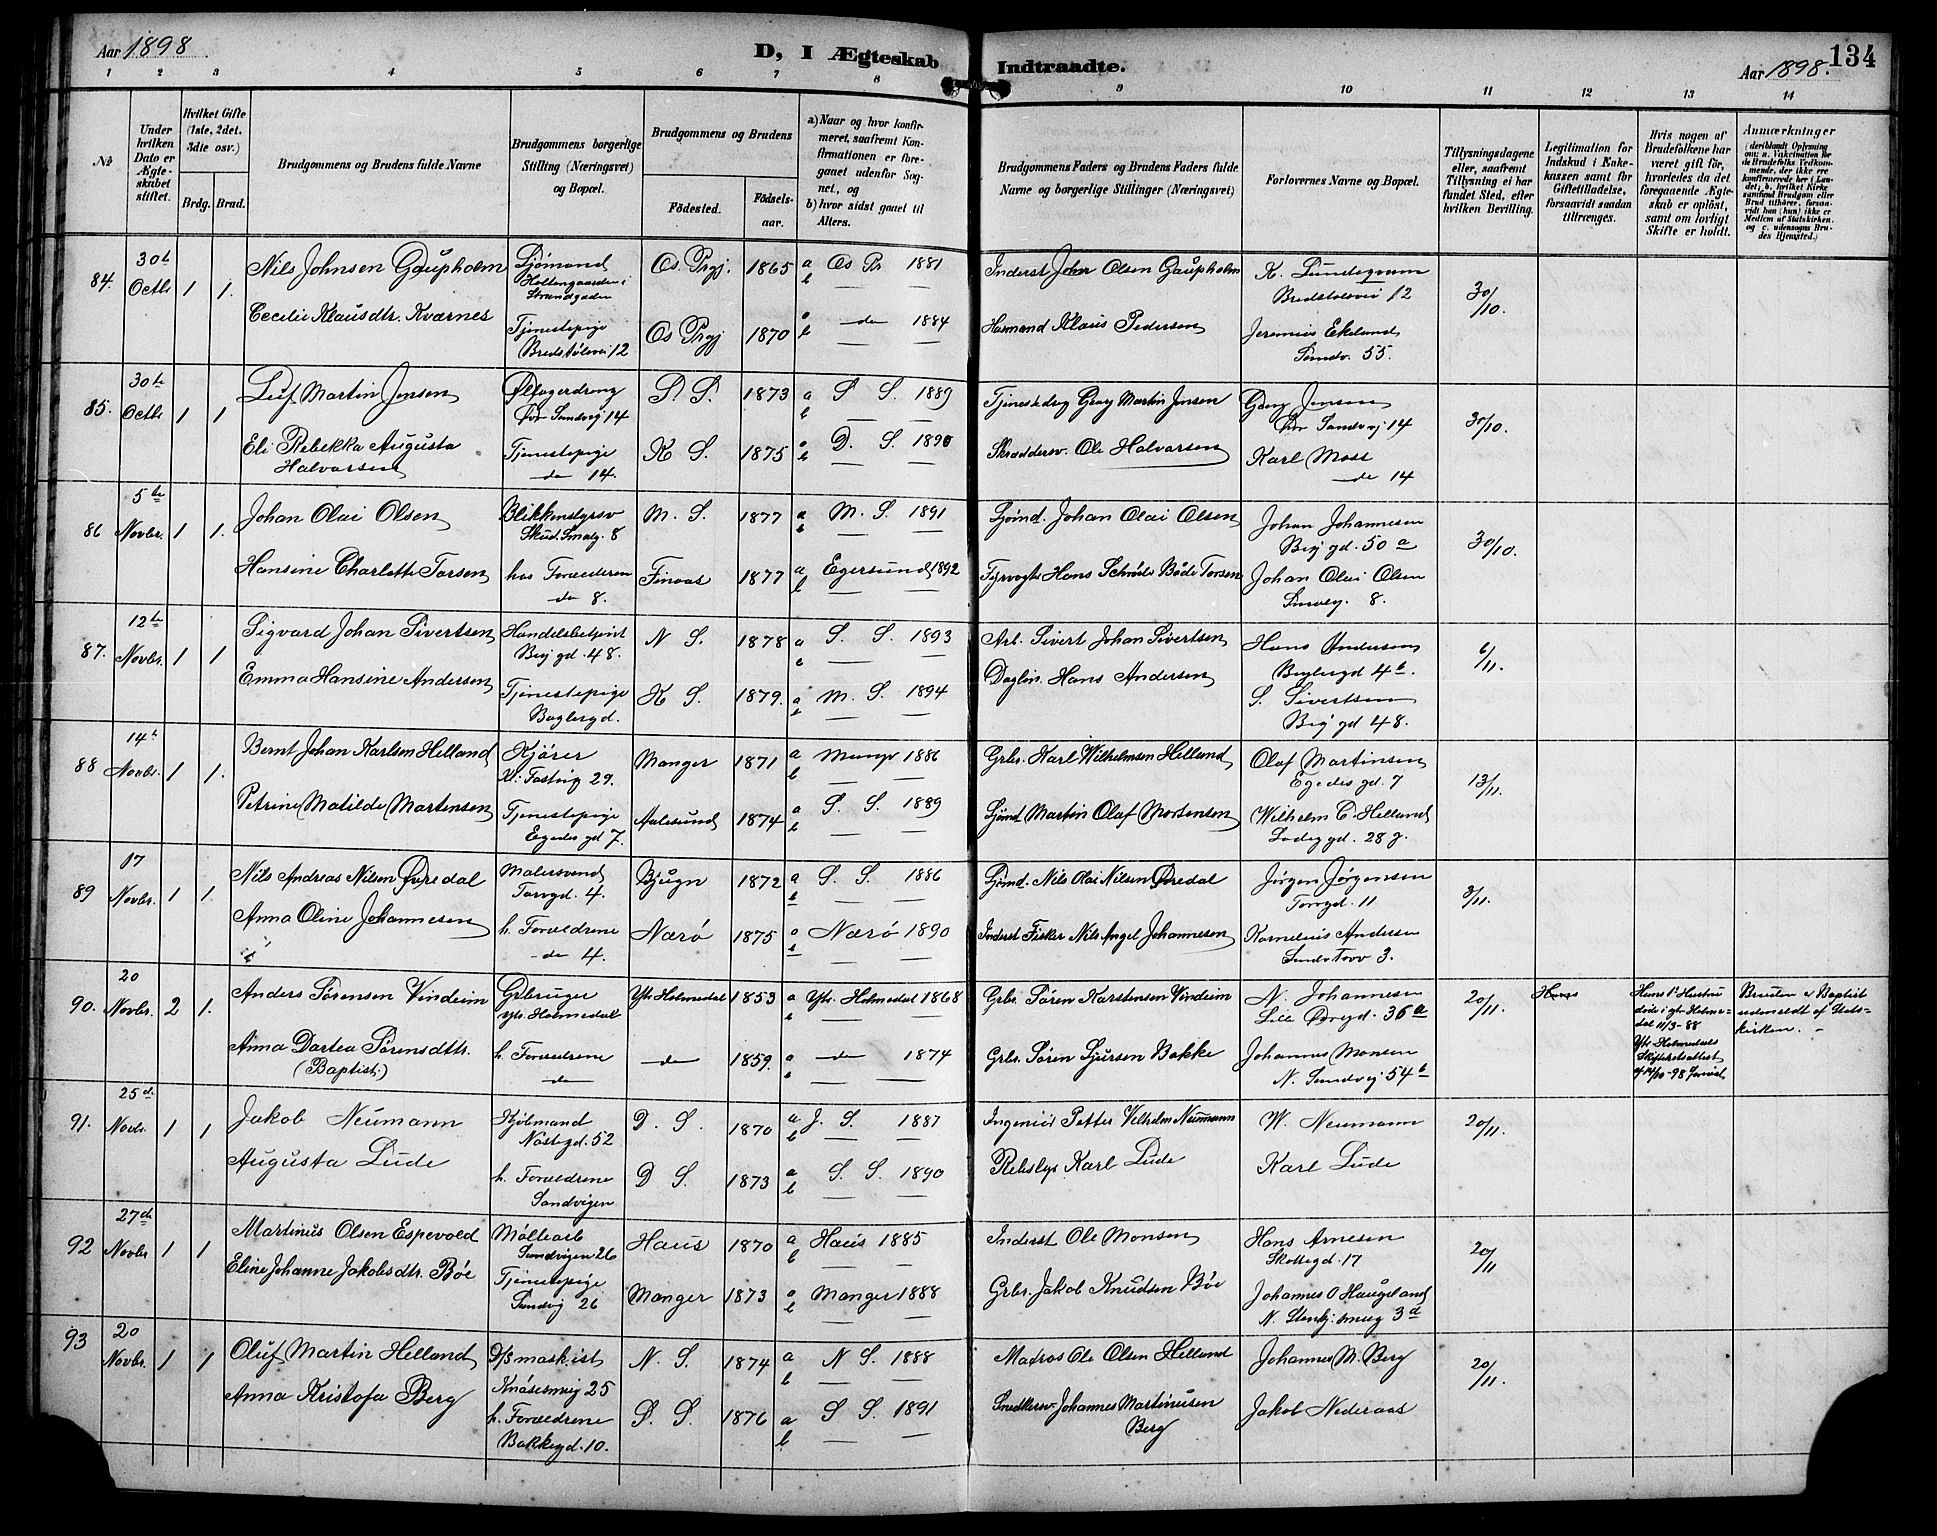 Aar 1898
D, I Ægteskab Indtraadte.
Aar 1898.
134
1 2 3 4 5 6 7 8 9 10 11 12 13 14
No
Under hvilken Dato er Ægteskabet stiftet.
Hvilket Gifte (1ste, 2det, 3die osv.)
Brdg. Brud.
Brudgommens og Brudens fulde Navne
Brudgommens borgerlige Stilling (Næringsvei) og Bopæl.
Brudgommens og Brudens
Fødested.
Fødselsaar.
a) Naar og hvor konfirmeret, saafremt Konfirmationen er foregaaet udenfor Sognet, og
b) hvor sidst gaaet til Alters.
Brudgommens Faders og Brudens Faders fulde Navne og borgerlige Stillinger (Næringsvei)
Forlovernes Navne og Bopæl.
Tillysningsdagene eller, saafremt Tillysning ei har fundet Sted, efter hvilken Bevilling.
Legitimation for Indskud i Enkekassen samt for Giftetilladelse, forsaavidt saadan tiltrænges.
Hvis nogen af Brudefolkene har været gift før, hvorledes da det foregaaende Ægteskab er opløst, samt om lovligt Skifte er holdt.
Anmærkninger
84. 30te Octbr 1 1. Nils Johnsen Gaupholm Sjømand Strandgaden Os Prgj. 1865 a Os Pr 1881 b — Inderst John Olsen Gaupholm 30/10.
Cecilie Klausdtr. Kvarnes Tjenestepige Bredstølsvei 12 Os Prgj 1870 a do 1884 b — Klaus Pedersen Jeremias Ekeland Sandv. 55.
85. 30te Octbr 1 1 Martin Jensen Sandvij 14 S. S. 1873 a S S. 1889 b Martin Jensen Georg Jensen Sandvij 14 30/10.
Eli Rebekka Augusta Halvorsen Tjenestepige do 14. K S. 1875 a D. S. 1890 b — Skræddersv. Ole Halvorsen Karl Moss do 14
86 5te Novbr. 1 1. Johan Olai Olsen Blikkenslagersv Smalg. 8 M. S. 1877 a M. S. 1891 b — Sjømd. Johan Olai Olsen Johan Johannesen gd. 50 a 30/10.
Hansine Charlotte Torsen hos Forældrene do 8. Finaas 1877 a Egersund 1892 b Fyrvogter Hans Torsen Johan Olai Olsen 8.
87. 12te Novbr. 1 1 Sigvard Johan Sivertsen Handelsbetjent gd. 48. N S. 1878 a S. S. 1893 b — Arb. Sivert Johan Sivertsen Hans Andersen Baglergd 4 b. 6/11.
Emma Hansine Andersen Tjenestepige Baglergd. K S. 1879. a M. S. 1894 b — Daglön. Hans Andersen S. Sivertsen gd 48.
88 14de Novbr. 1 1. Bernt Johan Karlsen Helland Kjører 29. Manger 1871 a Manger 1886 b — Grbr. Karl Wilhelmsen Helland Olaf Martinsen Egedes gd. 7 13/11.
Petrine Matilde Martensen Tjenestepige Egedes gd 7. Aalesund 1874 a S. S. 1889 b — Sjömd Martin Olaf Mortensen Wilhelm C. Helland 28
89 17 Novbr. 1 1. Nils Andreas Nilsen Øvredal Malersvend Torvgd. 4. Bjugn 1872 a S. S. 1886 b — Sjömd. Nils Olai Nilsen Øvredal Jørgen Jørgensen Torvgd. 11
Anna Oline Johannesen h. Forældrene do 4. Nærö 1875 a Nærö 1890 b — Inderst Fisker Nils Angel Johannesen Kornelius Andersen Torv 3.
90. 20 Novbr. 2 1. Anders Sørensen Vindeim Grbruger ytr. Holmedal Ytr. Holmedal 1853 a Ytr. Holmedal 1868 b — Grbr. Søren Karstensen Vindeim N. Johannesen Lille Øvregd. 36 a 20/11. Hans 1ste Hustru døde i ytr. Holmedal 11/3-88 Ytr Holmedals Skifteretsattest af 14/10-98 Bruden er Baptist udmeldt af Statskirken.
Anna Dartea Sørensdtr. (Baptist) h. Forældrene do do 1859. a do 1874 b — Grbr. Søren Sjursen Bakke Johannes Monsen N. Sandvij 54 b
91. 25de Novbr. 1 1 Jakob Neumann Kjøbmand Nöstegd. 52 D. S. 1870 a J. S. 1887 b — Ingeniör Petter Vilhelm Neumann W. Neumann 20/11.
Augusta Lude h. Forældrene Sandvigen D S. 1873 a S. S. 1890 b — Rebslgr Karl Lude Karl Lude
92 27de Novbr 1 1 Martinus Olsen Espevold Møllearb Sandvigen 26 Haus 1870 a Haus 1885 b — Inderst Ole Monsen Hans Arnesen Skottegd. 17 20/11
Eline Johanne Jakobsdtr. Böe Tjenestepige Sandvig 26 Manger 1873 a Manger 1888 b — Grbr. Jakob Knudsen Böe Johannes O Haugeland smug 3 d
93 20 Novbr. 1 1 Oluf Martin Helland D/S maskist Knösesmug 25 N. S. 1874 a N S. 1888 b — Matros Ole Olsen Helland Johannes M. Berg 20/11.
Anna Kristofa Berg h. Forældrene Bakkegd. 10. S. S. 1876 a S S. 1891 b — Snedkersv. Johannes Martinusen Berg Jakob Nederaas